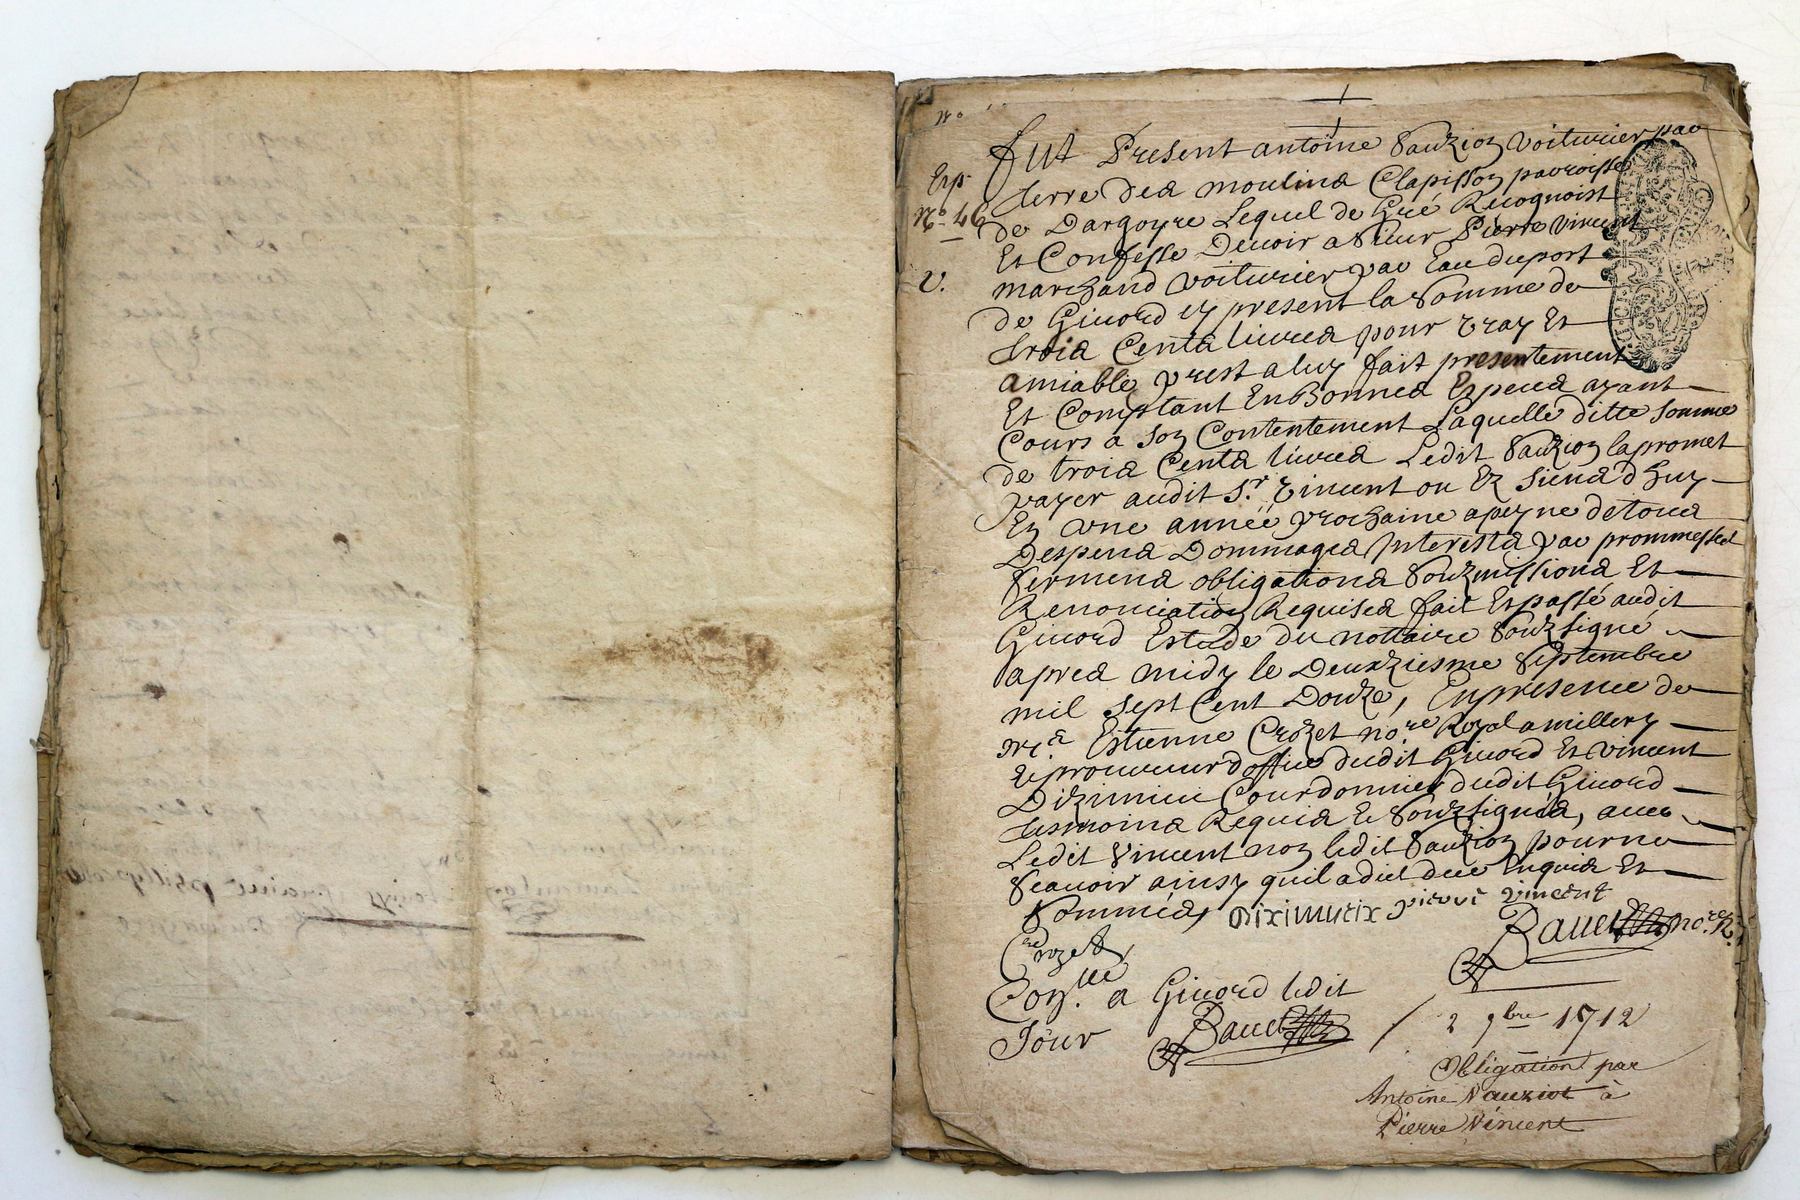 N°
fut Present antoine Vauzion Voiturier par
Exp.
terre des moulins Clapisson parroisse
N° 46
de Dargoyre Lequel de Gré Recognoist
Et Confesse Devoir a Sieur Pierre Vincent
V.
marchand voiturier par Eau du port
de Givord cy present la Somme de
trois Cents livres pour vray Et
amiable prest a luy fait presentement
Et Comptant En Bonnes Especes ayant
Cours a son Contentement Laquelle ditte somme
de trois Cents livres Ledit Vauzion la promet
payer audit S.r Vincent ou Ez siens d'huy
En une année prochaine a peyne de tous
Despens Dommages Interests par prommesses
Sermens obligations Soubzmissions Et
Renonciation Requises fait Et passé audit
Givord Estude du nottaire Soubzsigné
apres midy le Deuxziesme Septembre
mil sept Cent Douze, En presence de
Estienne Crozet no.re Royal a millery
Et procureur d'office dudit Givord Et vincent
Courdonnier dudit Givord
tesmoins Requis Et Soubzsignés, avec
Ledit Vincent non ledit Vauzion pour ne
Scavoir ainsy qu'il a dict de ce Enquis Et
Sommés, pierre vincent
Crozet
no.re R.
a Givord ledit
Jour
2 9bre 1712
Obligation par
Antoine Vauziot à
Pierre Vincent